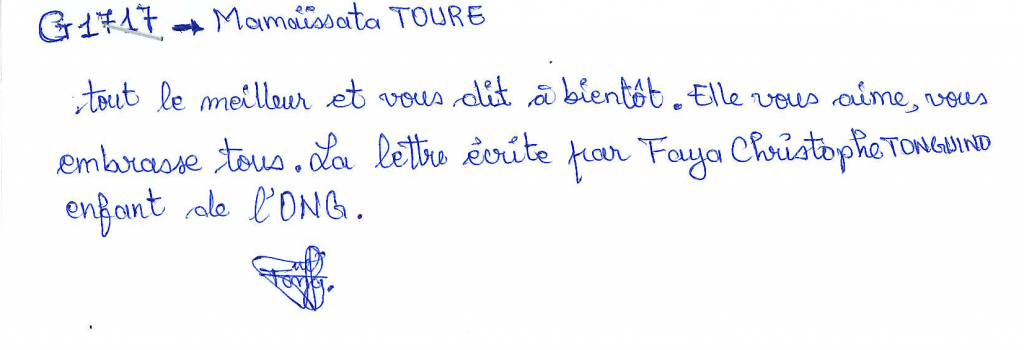 G1717 → Mamaïssata TOURE
tout le meilleur et vous dit à bientôt. Elle vous aime, vous
embrasse tous. La lettre écrite par Faya Christophe TONGUINO
enfant de l'ONG.
Tong.